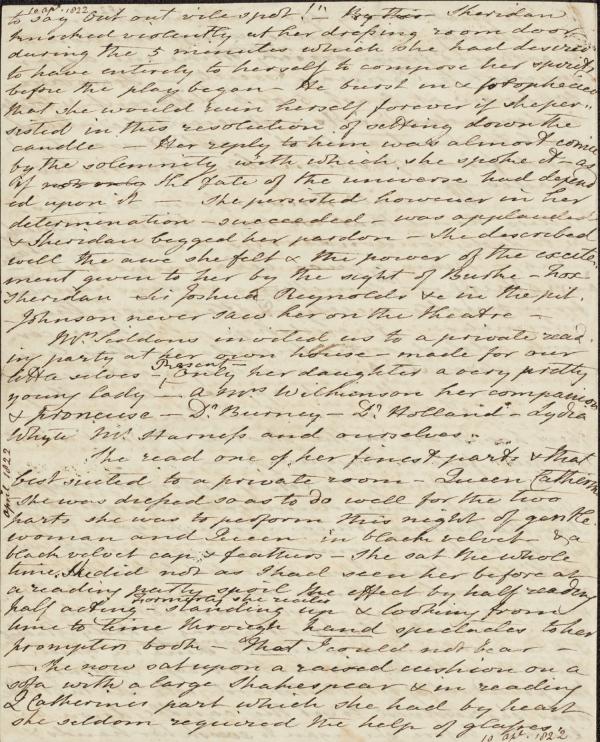 10 Apr. 1822
to say Out out vile spot!" - By this Sheridan
knocked violently at her dressing room door
during the 5 minutes which she had desired
to have entirely to herself to compose her spirits
before the play began - He burst in & prophecied
that she would ruin herself forever if she per-
sisted in this resolution of setting down the
candle - Her reply to him was almost comic
by the solemnity with which she spoke it - as
if not only the fate of the universe had depend
ed upon it - she persisted however in her
determination - succeeded - was applauded
& Sheridan begged her pardon - She described
well the awe she felt & the power of the excite-
ment given to her by the sight of Burke - Fox
Sheridan & Sir Joshua Reynolds &c in the pit.
Johnson never saw her on the theatre -
Mrs Siddons invited us to a private read-
ing party at her own house - made for our
little selves Present only her daughter a very pretty
young lady - a Mrs Wilkinson her companion
& Proneuse - Dr Burney - Dr Holland - Lydia
Whyte Mr Harness and ourselves.
She read one of her finest parts & that
best suited to a private room - Queen Catherine
She was dressed so as to do well for the two
parts she was to perform this night of gentle-
woman and Queen in black velvet - & a
black velvet cap & feathers - She sat the whole
time, She did not as I had seen her before at
a reading party spoil the effect by half reading
half acting - Formerly she was standing up & looking from
time to time through hand spectacles to her
prompters book - That I could not bear -
- She now sat upon a raised cushion on a
sofa with a large Shakespear & in reading
Q Catherines part which she had by heart
she seldom required the help of glasses
april 1822
10 Apr. 1822